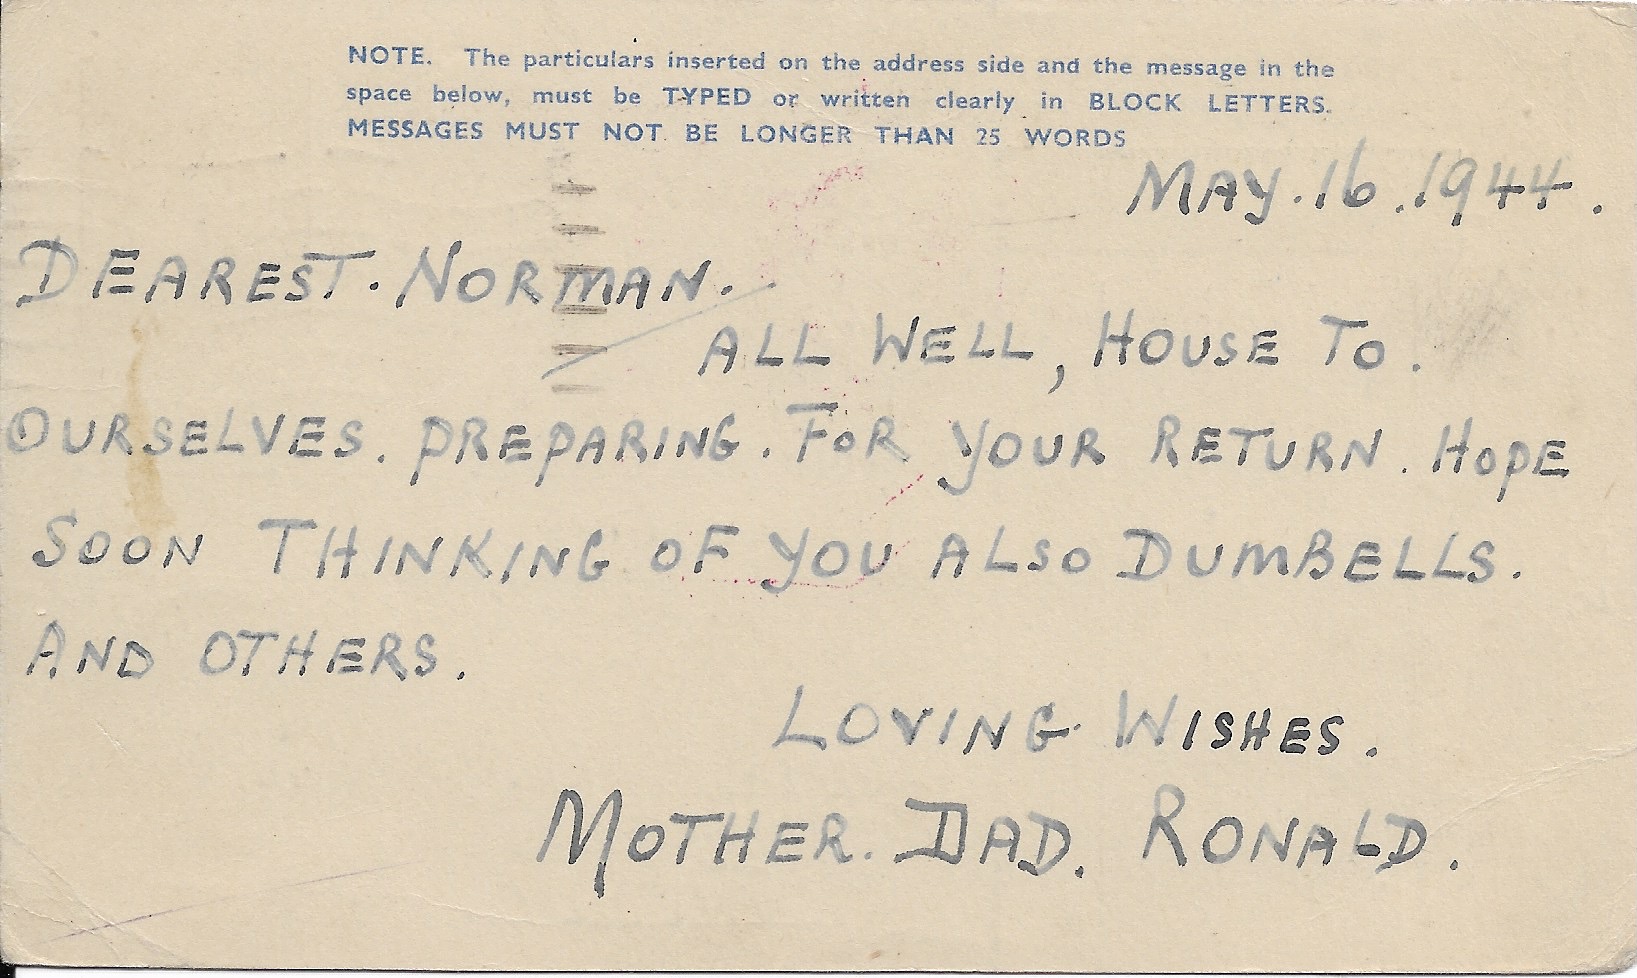 NOTE. The particulars inserted on the address side and the message in the
space below, must be TYPED or written clearly in BLOCK LETTERS.
MESSAGES MUST NOT BE LONGER THAN 25 WORDS
MAY. 16. 1944.
DEAREST. NORMAN.
ALL WELL, HOUSE TO.
OURSELVES. PREPARING. FOR YOUR RETURN. HOPE
SOON THINKING OF YOU ALSO DUMBELLS.
AND OTHERS.
LOVING WISHES.
MOTHER. DAD. RONALD.